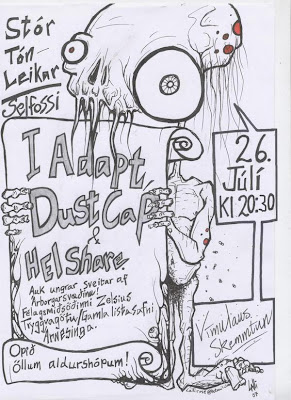 Stór
Tón-
Leikar
Selfossi
I Adapt
Dust Cap
&
HELShare
Auk ungrar sveitar af
Árborgarsvæðinu!
Félagsmiðstöðinni Zelsius
Tryggvagötu/Gamla listasafni
Árnesinga.
Opið
öllum aldurshópum!
26.
Júlí
Kl 20:30
Vímulaus
Skemmtun